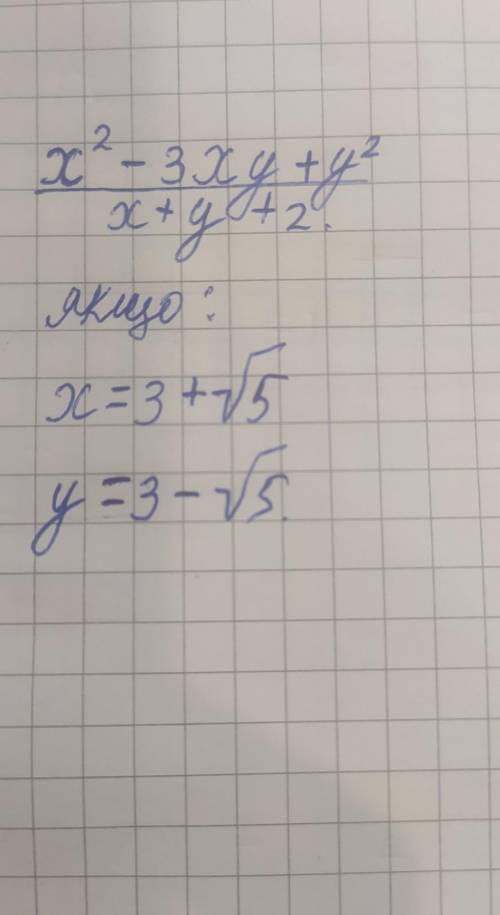 x² - 3xy + y²
x + y + 2.
якщо:
x = 3 + √5
y = 3 - √5.